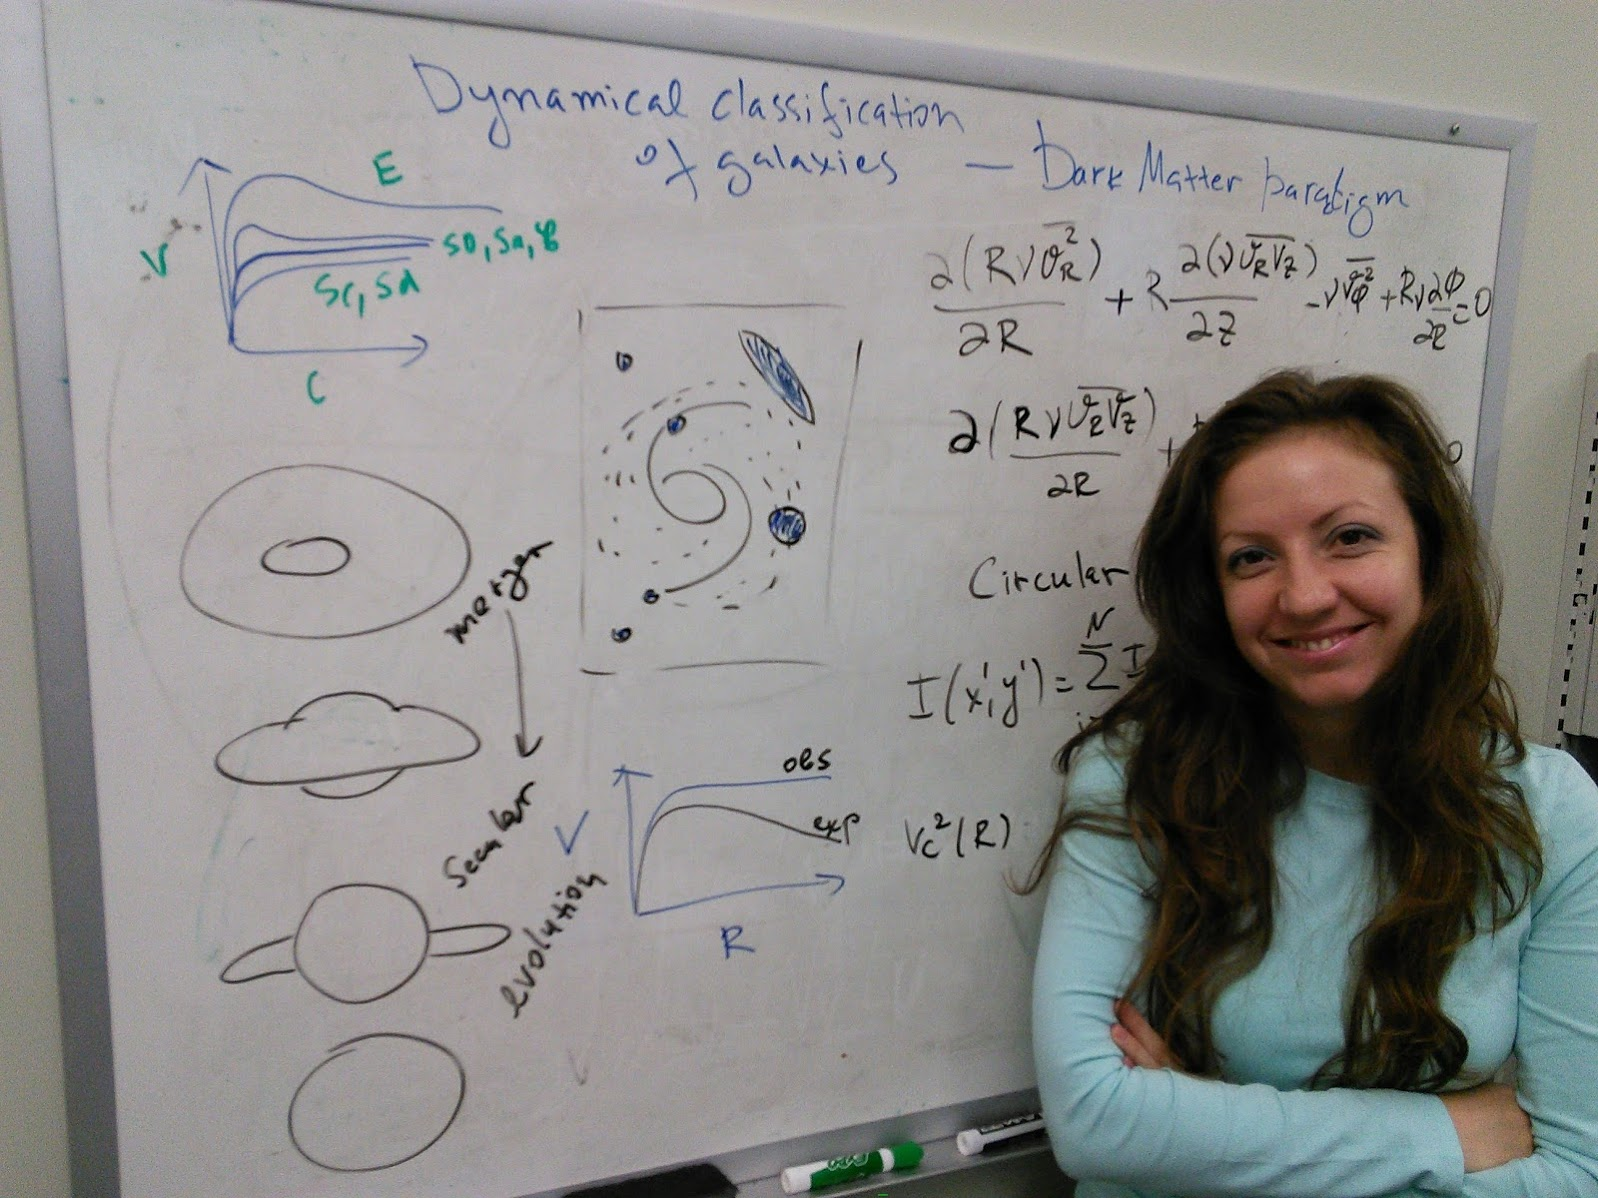 Dynamical classification
of galaxies — Dark Matter paradigm
E
V
S0, Sa, Sb
Sc, Sd
C
∂(Rν\overline{v_R^2})/∂R + R ∂(ν\overline{v_R v_z})/∂z − ν\overline{v_φ^2} + Rν ∂Φ/∂R = 0
∂(Rν\overline{v_R v_z})/∂R +
0
Circular
I(x', y') = Σ N I
merger
secular
evolution
obs
exp
V
R
V_c^2(R)